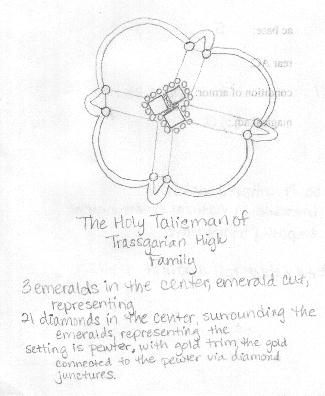 ac base:
rear AC
condition of armor:
magic adj:
The Holy Talisman of
Trassgarian High
Family
3 emeralds in the center, emerald cut,
representing
21 diamonds in the center, surrounding the
emeralds, representing the
setting is pewter, with gold trim, the gold
connected to the pewter via diamond
junctures.